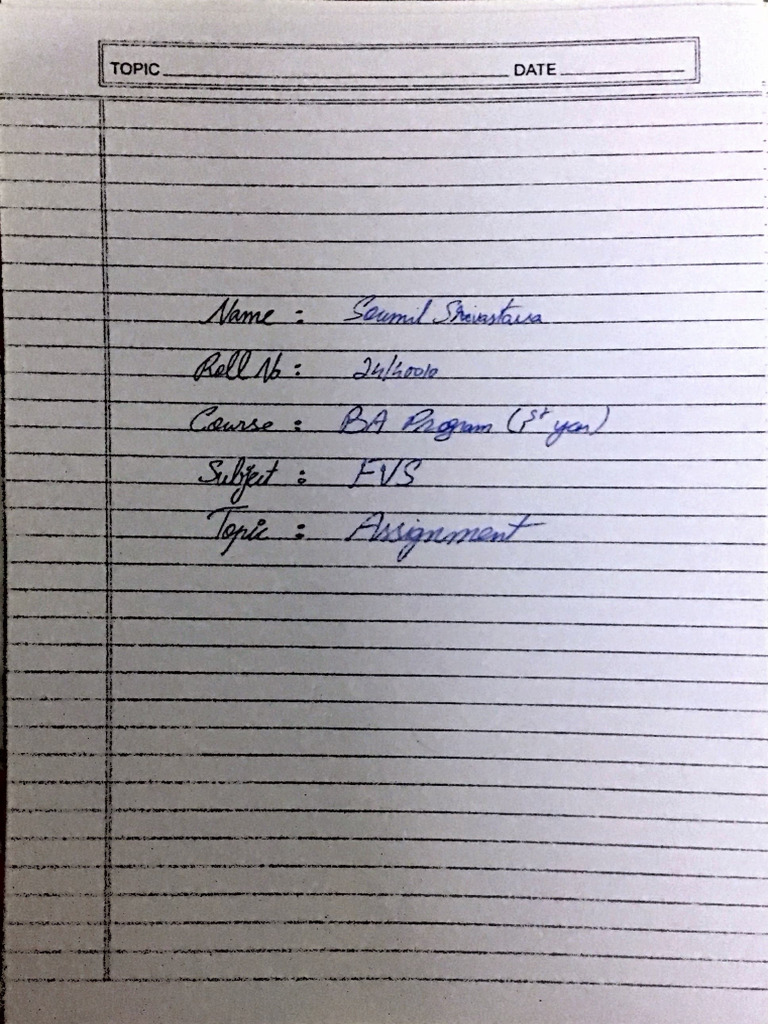 TOPIC DATE
Name : Soumil Srivastava
Roll No : 24/40010
Course : BA Program (1st year)
Subject : EVS
Topic : Assignment